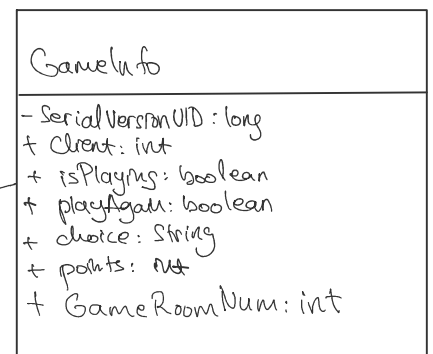 GameInfo
- SerialVersionUID : long
+ Client: int
+ isPlaying: boolean
+ playAgain: boolean
+ choice: String
+ points: int
+ GameRoomNum: int